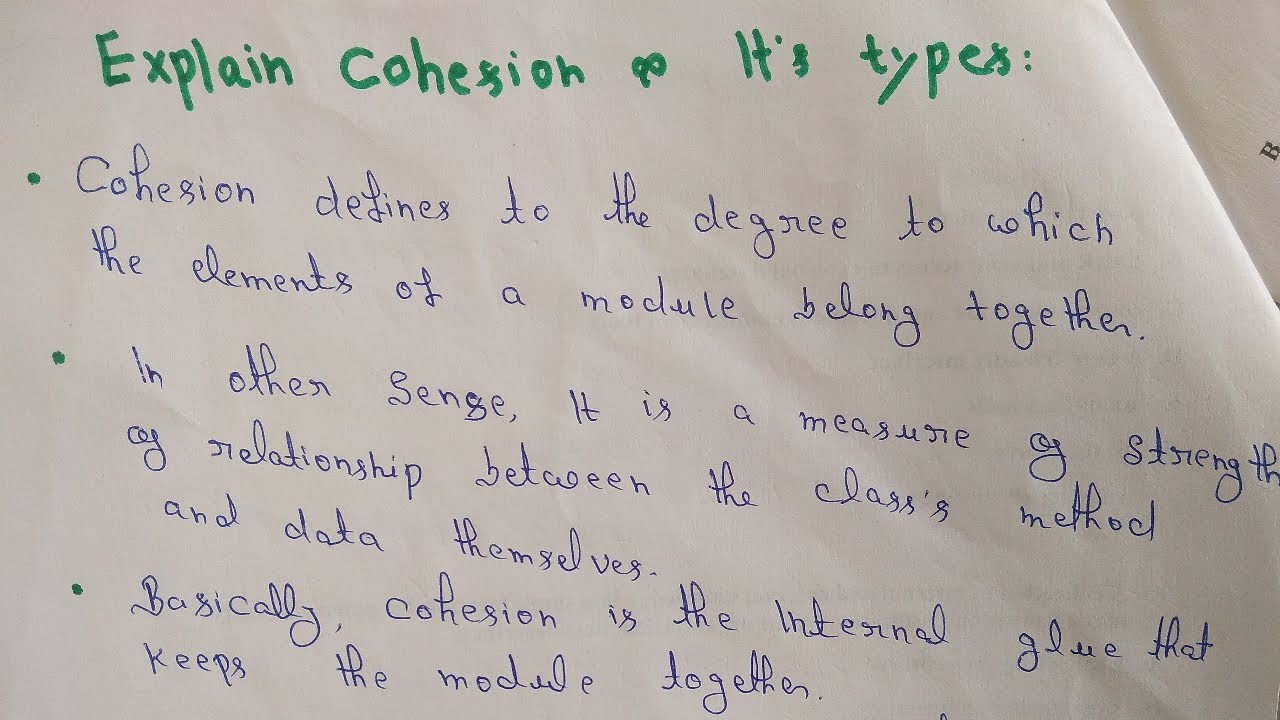 Explain Cohesion & It's types:
• Cohesion defines to the degree to which
the elements of a module belong together.
• In other Sense, It is a measure of strength
of relationship between the class's method
and data themselves.
• Basically, cohesion is the Internal glue that
keeps the module together.
B